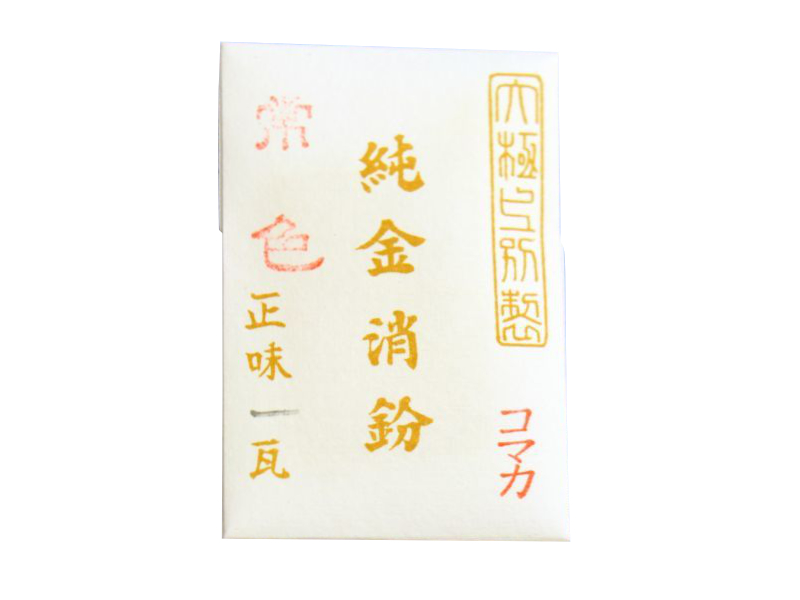 大極上別製
コマカ
純金消鈖
常色
正味一瓦